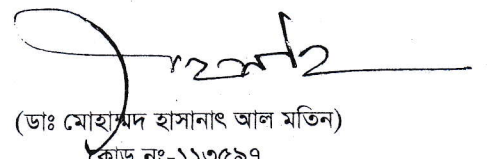 (ডাঃ মোহাম্মদ হাসানাৎ আল মতিন)
কোড নং-১১৩৫৯৭